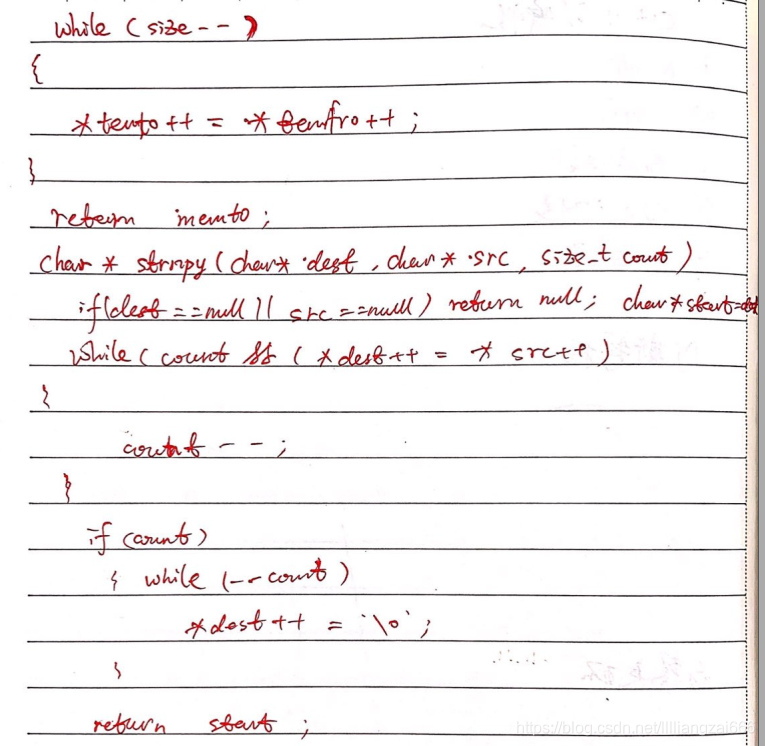 while (size--)
{
*tempto++ = *temfro++;
}
return memto;
char * strnpy(char* dest, char* src, size_t count)
if(dest==null || src==null) return null; char*start=dest
while(count && (*dest++ = *src++)
{
count--;
}
if (count)
{ while (--count)
*dest++ = '\0';
}
return start;
https://blog.csdn.net/llliangzai66